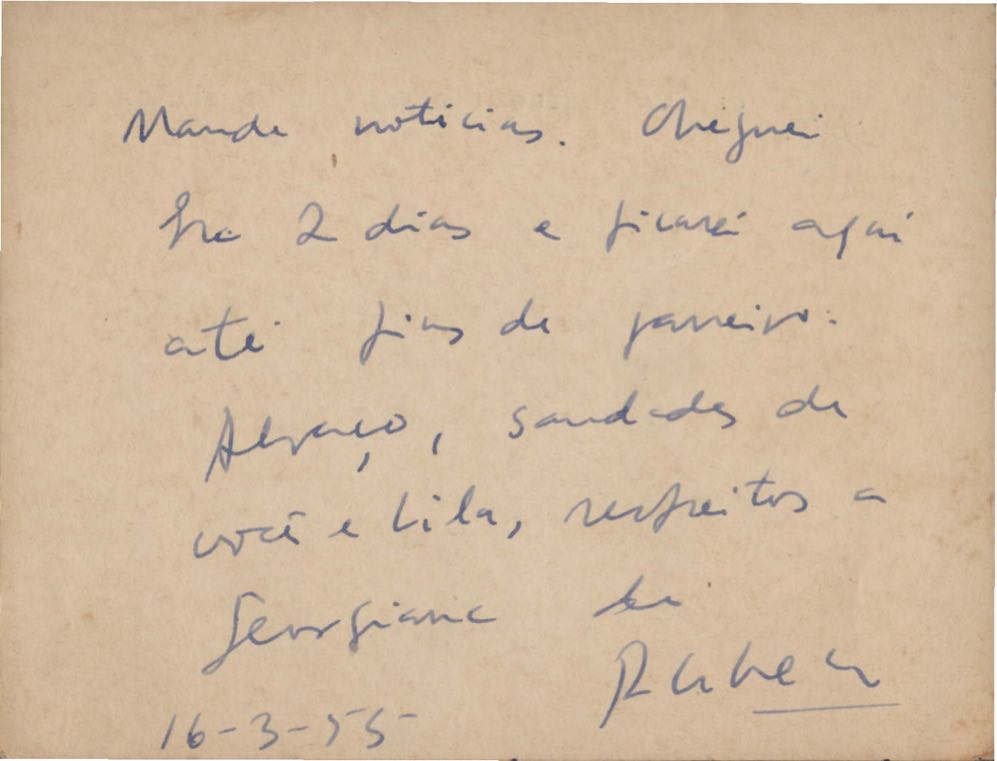 Mande noticias. Cheguei
ha 2 dias e ficarei aqui
até fins de janeiro.
Abraço, saudades de
você e Lila, respeitos a
Georgiana do
Rubem
16-3-55